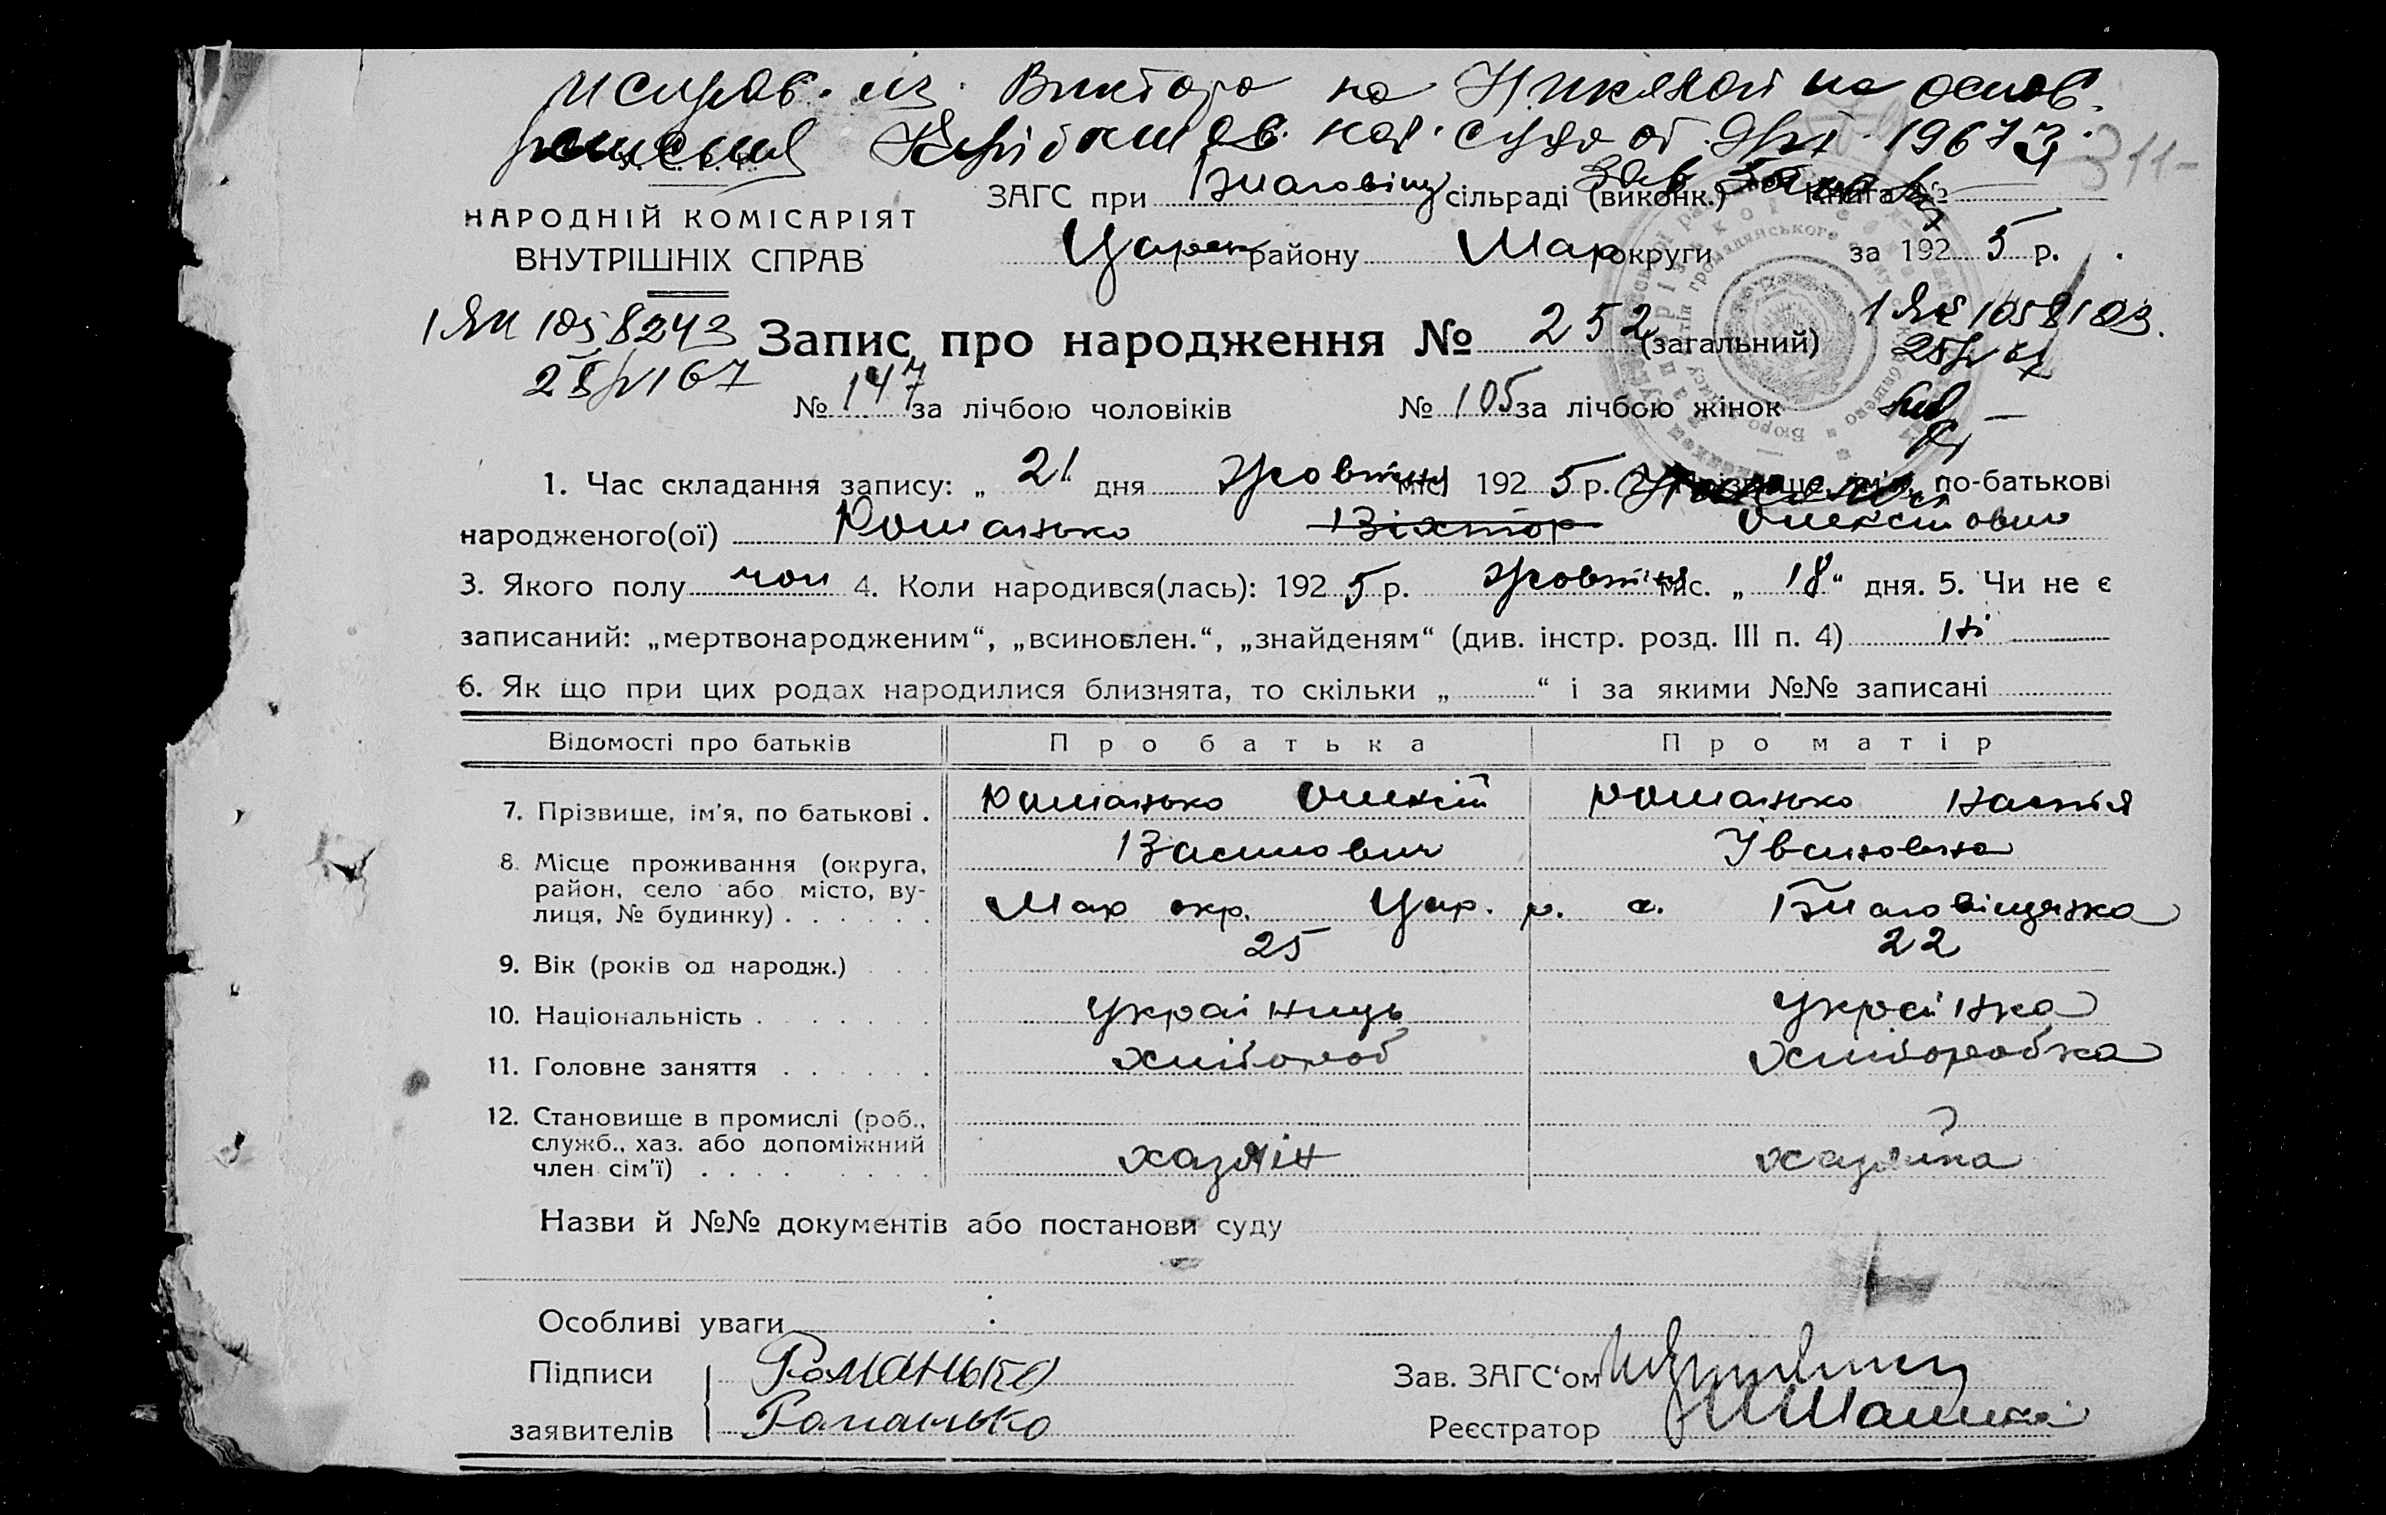 исправ. из Виктора на Николай на основ.
решения нар. суда от 1967
311-
У. С. Р. Р.
НАРОДНІЙ КОМІСАРІЯТ
ВНУТРІШНІХ СПРАВ
ЗАГС при Благовіщ сільраді (виконк.) Книга №
Царек району Мар округи за 1925 р.
1 ЯК 1058243
Запис про народження № 252 (загальний)
№ 147 за лічбою чоловіків № 105 за лічбою жінок
1. Час складання запису: „ 21 дня жовтня міс. 1925 р. 2. Прізвище, ім'я, по-батькові
народженого(ої) Романько Віктор Олексійович
3. Якого полу чол 4. Коли народився(лась): 1925 р. жовтня міс. „ 18 “ дня. 5. Чи не є
записаний: „мертвонародженим“, „всиновлен.“, „знайденям“ (див. інстр. розд. III п. 4) ні
6. Як що при цих родах народилися близнята, то скільки „ “ і за якими №№ записані
Відомості про батьків Про батька Про матір
7. Прізвище, ім'я, по батькові . Романько Олексій Романько Настя
Василович Івановна
8. Місце проживання (округа,
район, село або місто, ву-
лиця, № будинку) . . . . . . Мар окр. Цар. р. с. Благовіщенка
9. Вік (років од народж.) 25 22
10. Національність . . . . . . . Українець Українка
11. Головне заняття . . . . . . хлібороб хліборобка
12. Становище в промислі (роб.,
служб., хаз. або допоміжний
член сім'ї) . . . . . . . . хазяїн хазяйка
Назви й №№ документів або постанови суду
Особливі уваги
Підписи Романько Зав. ЗАГС‘ом
заявителів Романько Реєстратор